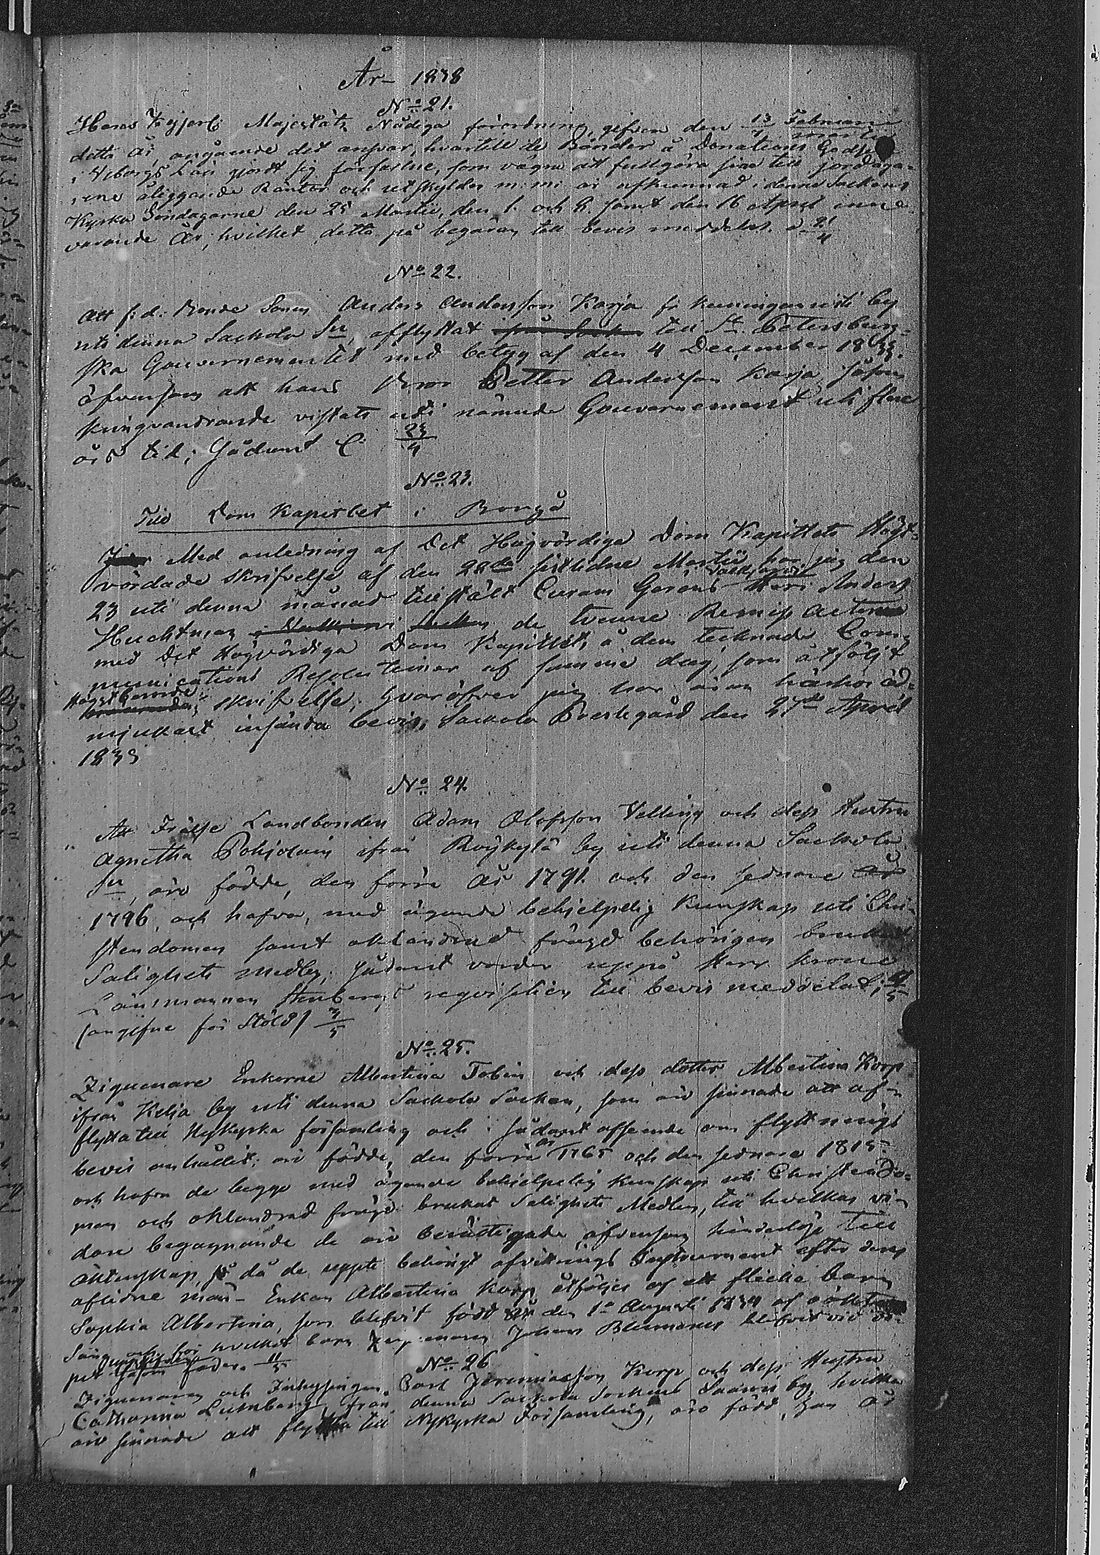 År 1838
No 21.
Hans Kejserl Majestäts Nådiga förordning, gifven den 13 Februari
detta år angående det ansvar, hvartill de Bönder å Donations Godsen
i Wiborgs Län gjort sig förfallne, som vägra att fullgöra sina till
åliggande Räntor och utskylder m: m: är afkunnad i denna Sockens
Kyrka Söndagarne den 25 Martii, den 1 och 8 samt den 16 April inne-
varande År, hvilket detta på begäran till bevis meddelas. d. 21/4
No 22.
Att f. d. Bonde Sonen Anders Andersson Karja fr by
uti denna Sackola Sn afflyttat till St Petersburg-
ska Gouvernementet med betyg af den 4 December 1833.
äfvensom att hans Bror Petter Andersson Karja såsom
kringvandrande vistats uti nämnde Gouvernement uti flere
års tid; Sådant 23/4
No 23.
Till Dom Kapitlet i Borgå
Med anledning af Det Högvördige Dom Kapitlets Högt-
vördade skrifvelse af den 28de sistledne Martii har jag den
23 uti denna månad tillstält Herr Anders
Huchtman de tvenne Remiss Acterne
med Det Högvördiga Dom Kapitlets å dem tecknade Com-
munications Resolutioner af samma dag, som åtföljt
Högstberörde skrifvelse; hvaröfver jag har äran härhos öd-
mjukast insända bevis, Sackola Prestegård den 27de April
1838
No 24.
Att Frälse Landbonden Adam Olofsson Velling och dess Hustru
Agnetha Pohjolain ifrån Röykylä by uti denna Sackola
Sn äro födde, den förre År 1791 och den sednare
1796, och hafva, med ägande behjelpelig kunskap uti Chri-
stendomen samt oklandrad frägd behörigen brukat
Salighets medlen; sådant varder uppå Herr Krono
Länsmannen Stenbergs requisition till bevis meddelat;
(angifne för Stöld) 3/5
No 25.
Ziguenare Enkorne Albertina Tobin och dess dotter Albertina Korp
ifrån Kelja by uti denna Sackola Socken, som äro sinnade att af-
flytta till Nykyrka församling och i sådant afseende om flyttnings
bevis anhållit, äro födde, den förra år 1765 och den sednare 1815.
och hafva de begge med ägande behjelpelig kunskap uti Christendo-
men och oklandrad frägd brukat Salighets Medlen, till hvilkas vi-
dare begagnande de äro berättigade, äfvensom hinderlöse till
äktenskap, då de uppte behörigt afvittrings Instrument efter deras
aflidne män - Enkan Albertina Korp åtföljes af ett flicke barn
Sophia Albertina, som blifvit född den 1 Augusti 1834
hvilket barn Johan blifvit
såsom fader. 11/5
No 26
Ziguenaren och Carl Jeremiasson Korp och dess Hustru
Catharina Lumberg, ifrån denna Sackola Sockens by, hvilka
äro sinnade att flytta till Nykyrka Församling, äro född, han år